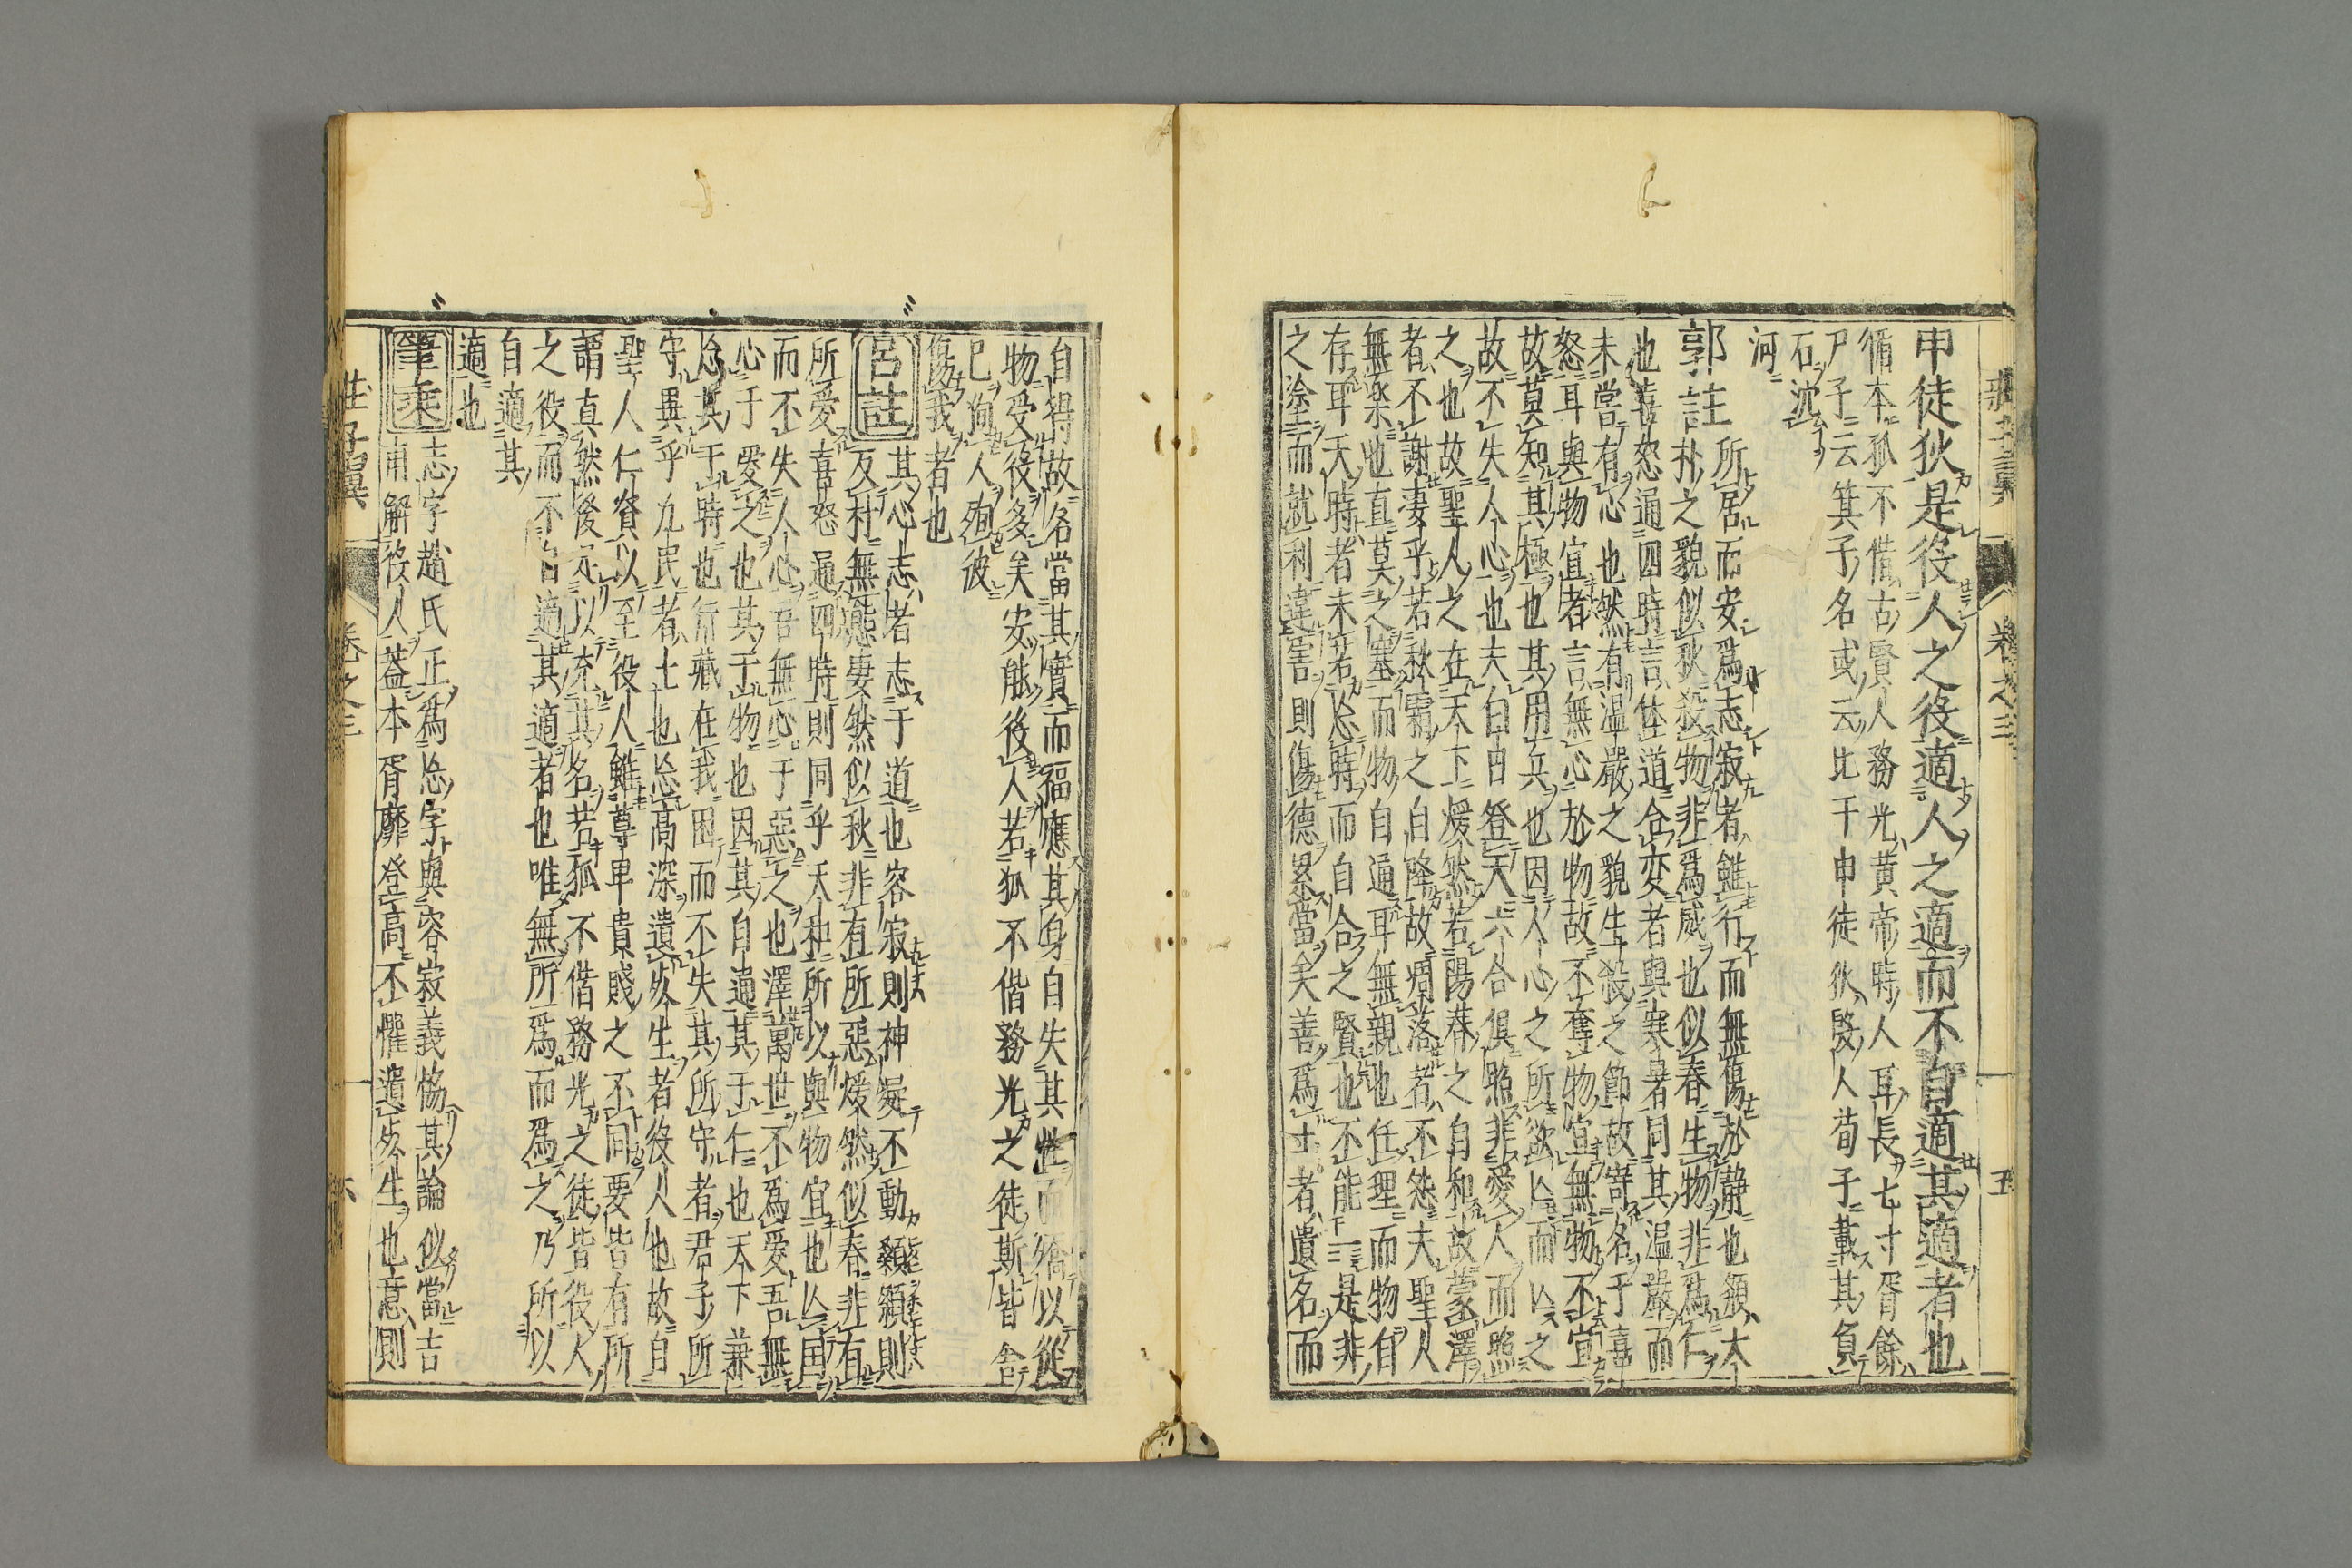 莊子翼 卷之三 五
申徒狄是役人之役適人之適而不自適其適者也
循本狐不偕古賢人務光黃帝時人耳長七寸胥餘
尸子云箕子名或云比干申徒狄殷人荀子載其負
石沈
河
郭註 所居而安爲志寂者雖行而無傷於靜也頯大
朴之貌似秋殺物非爲威也似春生物非爲仁
也喜怒通四時言体道合変者與寒暑同其溫嚴而
未嘗有心也然有溫嚴之貌生殺之節故寄名于喜
怒耳與物宜者言無心於物故不奪物宜無物不宜
故莫知其極也其用兵也因人心之所欲亾而亾之
故不失人心也夫白日登天六合俱照非愛人而照
之也故聖人之在天下煖然若陽春之自和故蒙澤
者不謝凄乎若秋霜之自降故凋落者不怨夫聖人
無樂也直莫之塞而物自通耳無親也任理而物自
存耳天時者未若忘時而自合之賢也不能一是非
之塗而就利違害則傷德累當矣善爲士者遺名而
自得故名當其實而福應其身自失其性而矯以從
物受役多矣安能役人若狐不偕務光之徒斯皆舍
己狥人殉彼
傷我者也
呂註 其心志者志于道也容寂則神凝不動頯頯則
反朴無態凄然似秋非有所惡煖然似春非有
所愛喜怒通四時則同乎天和所以與物宜也亾国
而不失人心吾無心于惡之也澤萬世不爲愛吾無
心于愛之也其于物也因其自通其于仁也天下兼
忘其于時也行藏在我困而不失其所守者君子所
守異乎凡民者士也忘高深遺死生者役人也故自
聖人仁賢以至役人雖尊卑貴賤之不同要皆有所
謂真然後足以充其名若狐不偕務光之徒皆役人
之役而不自適其適者也唯無所爲而爲之乃所以
自適其
適也
筆乘 志字趙氏正爲忘字與容寂義恊其論似當吉
甫解役人葢本胥靡登高不懼遺死生也意則
莊子翼 卷之三 六